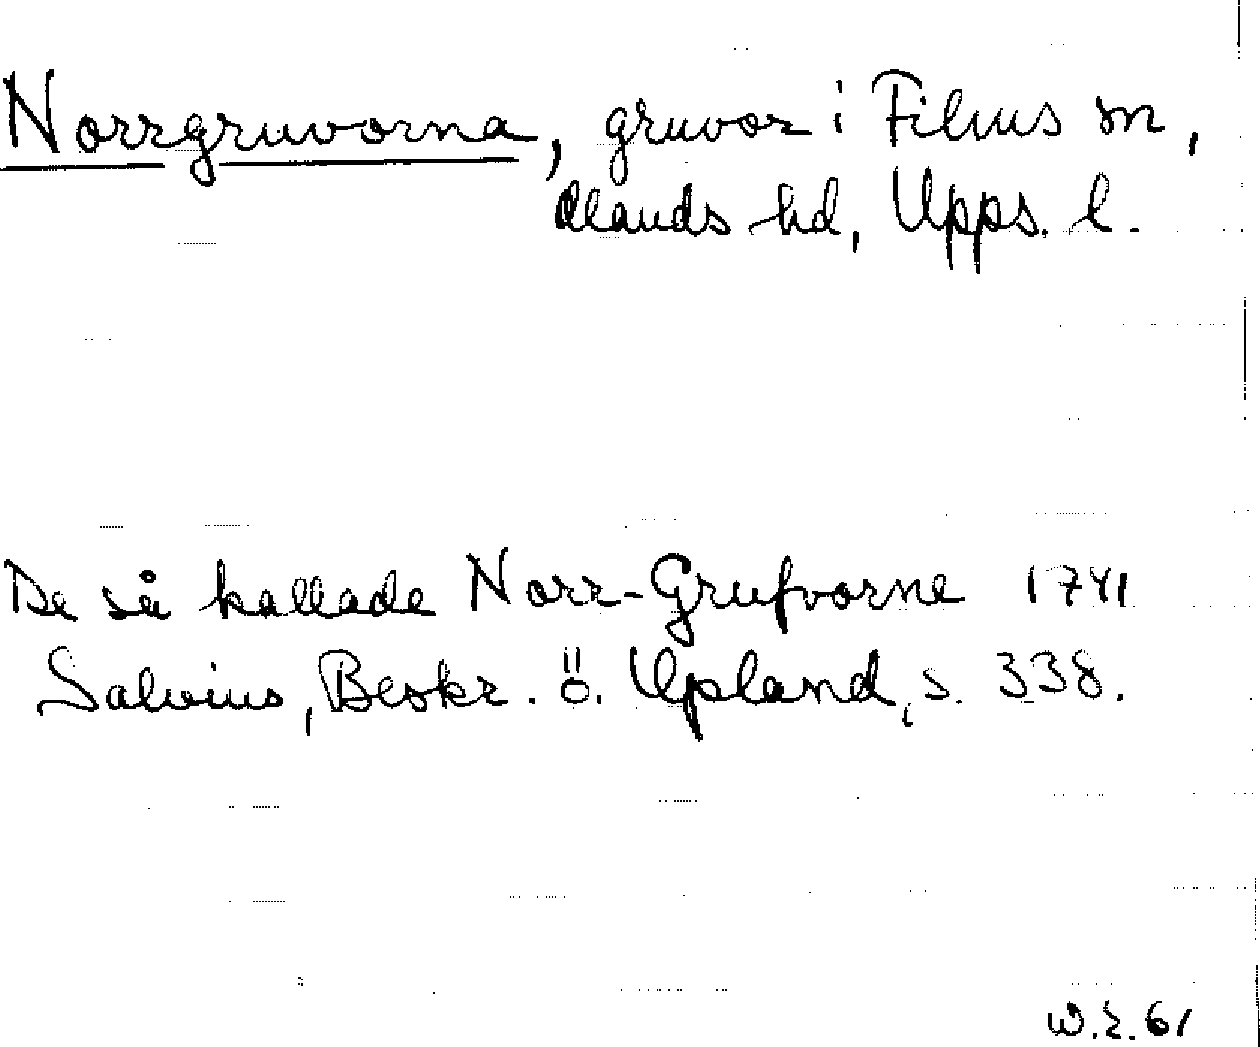 Norrgruvorna, gruvor i Films sn,
Olands hd, Upps. l.
De så kallade Norr-Grufvorne 1741
Salvius, Beskr. ö. Upland, s. 338.
W.E. 61